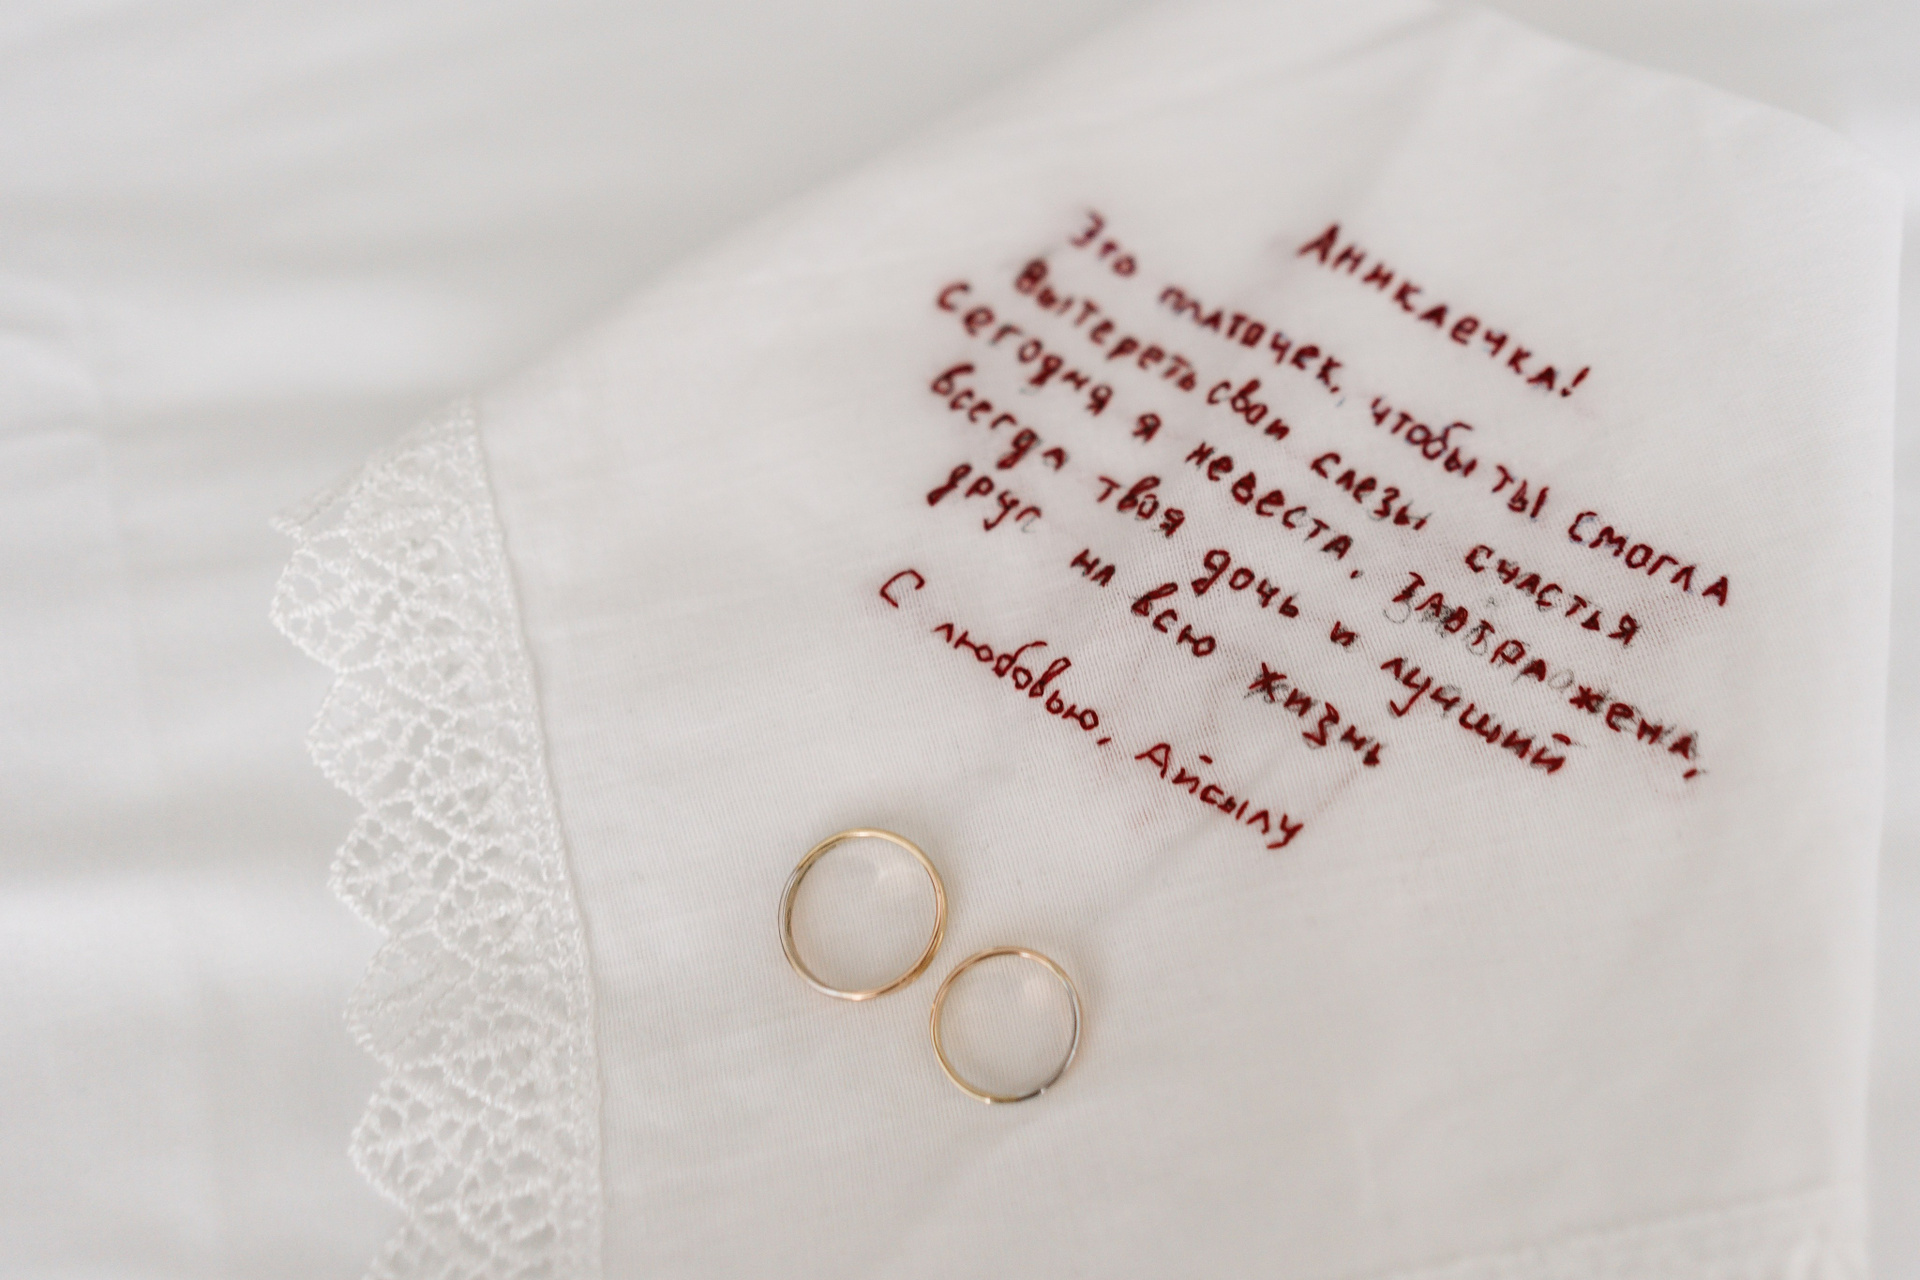 Аникаечка!
Это платочек, чтобы ты смогла
вытереть свои слезы счастья
Сегодня я невеста, завтра жена,
всегда твоя дочь и лучший
друг на всю жизнь
С любовью, Айсылу